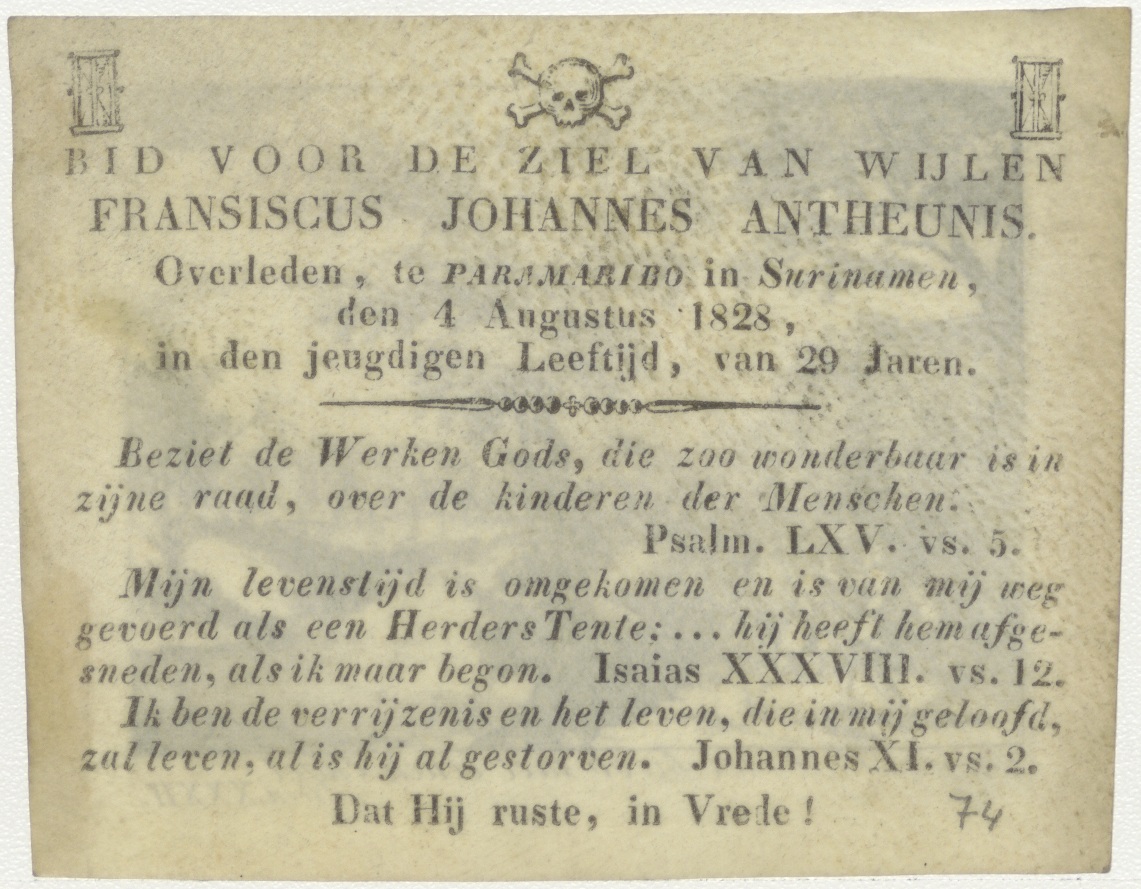 BID VOOR DE ZIEL VAN WIJLEN
FRANSISCUS JOHANNES ANTHEUNIS.
Overleden, te PARAMARIBO in Surinamen,
den 4 Augustus 1828,
in den jeugdigen Leeftijd, van 29 Jaren.
Beziet de Werken Gods, die zoo wonderbaar is in
zijne raad, over de kinderen der Menschen.
Psalm. LXV. vs. 5.
Mijn levenstijd is omgekomen en is van mij weg
gevoerd als een Herders Tente; ... hij heeft hem afge-
sneden, als ik maar begon. Isaias XXXVIII. vs. 12.
Ik ben de verrijzenis en het leven, die in mij geloofd,
zal leven, al is hij al gestorven. Johannes XI. vs. 2.
Dat Hij ruste, in Vrede! 74